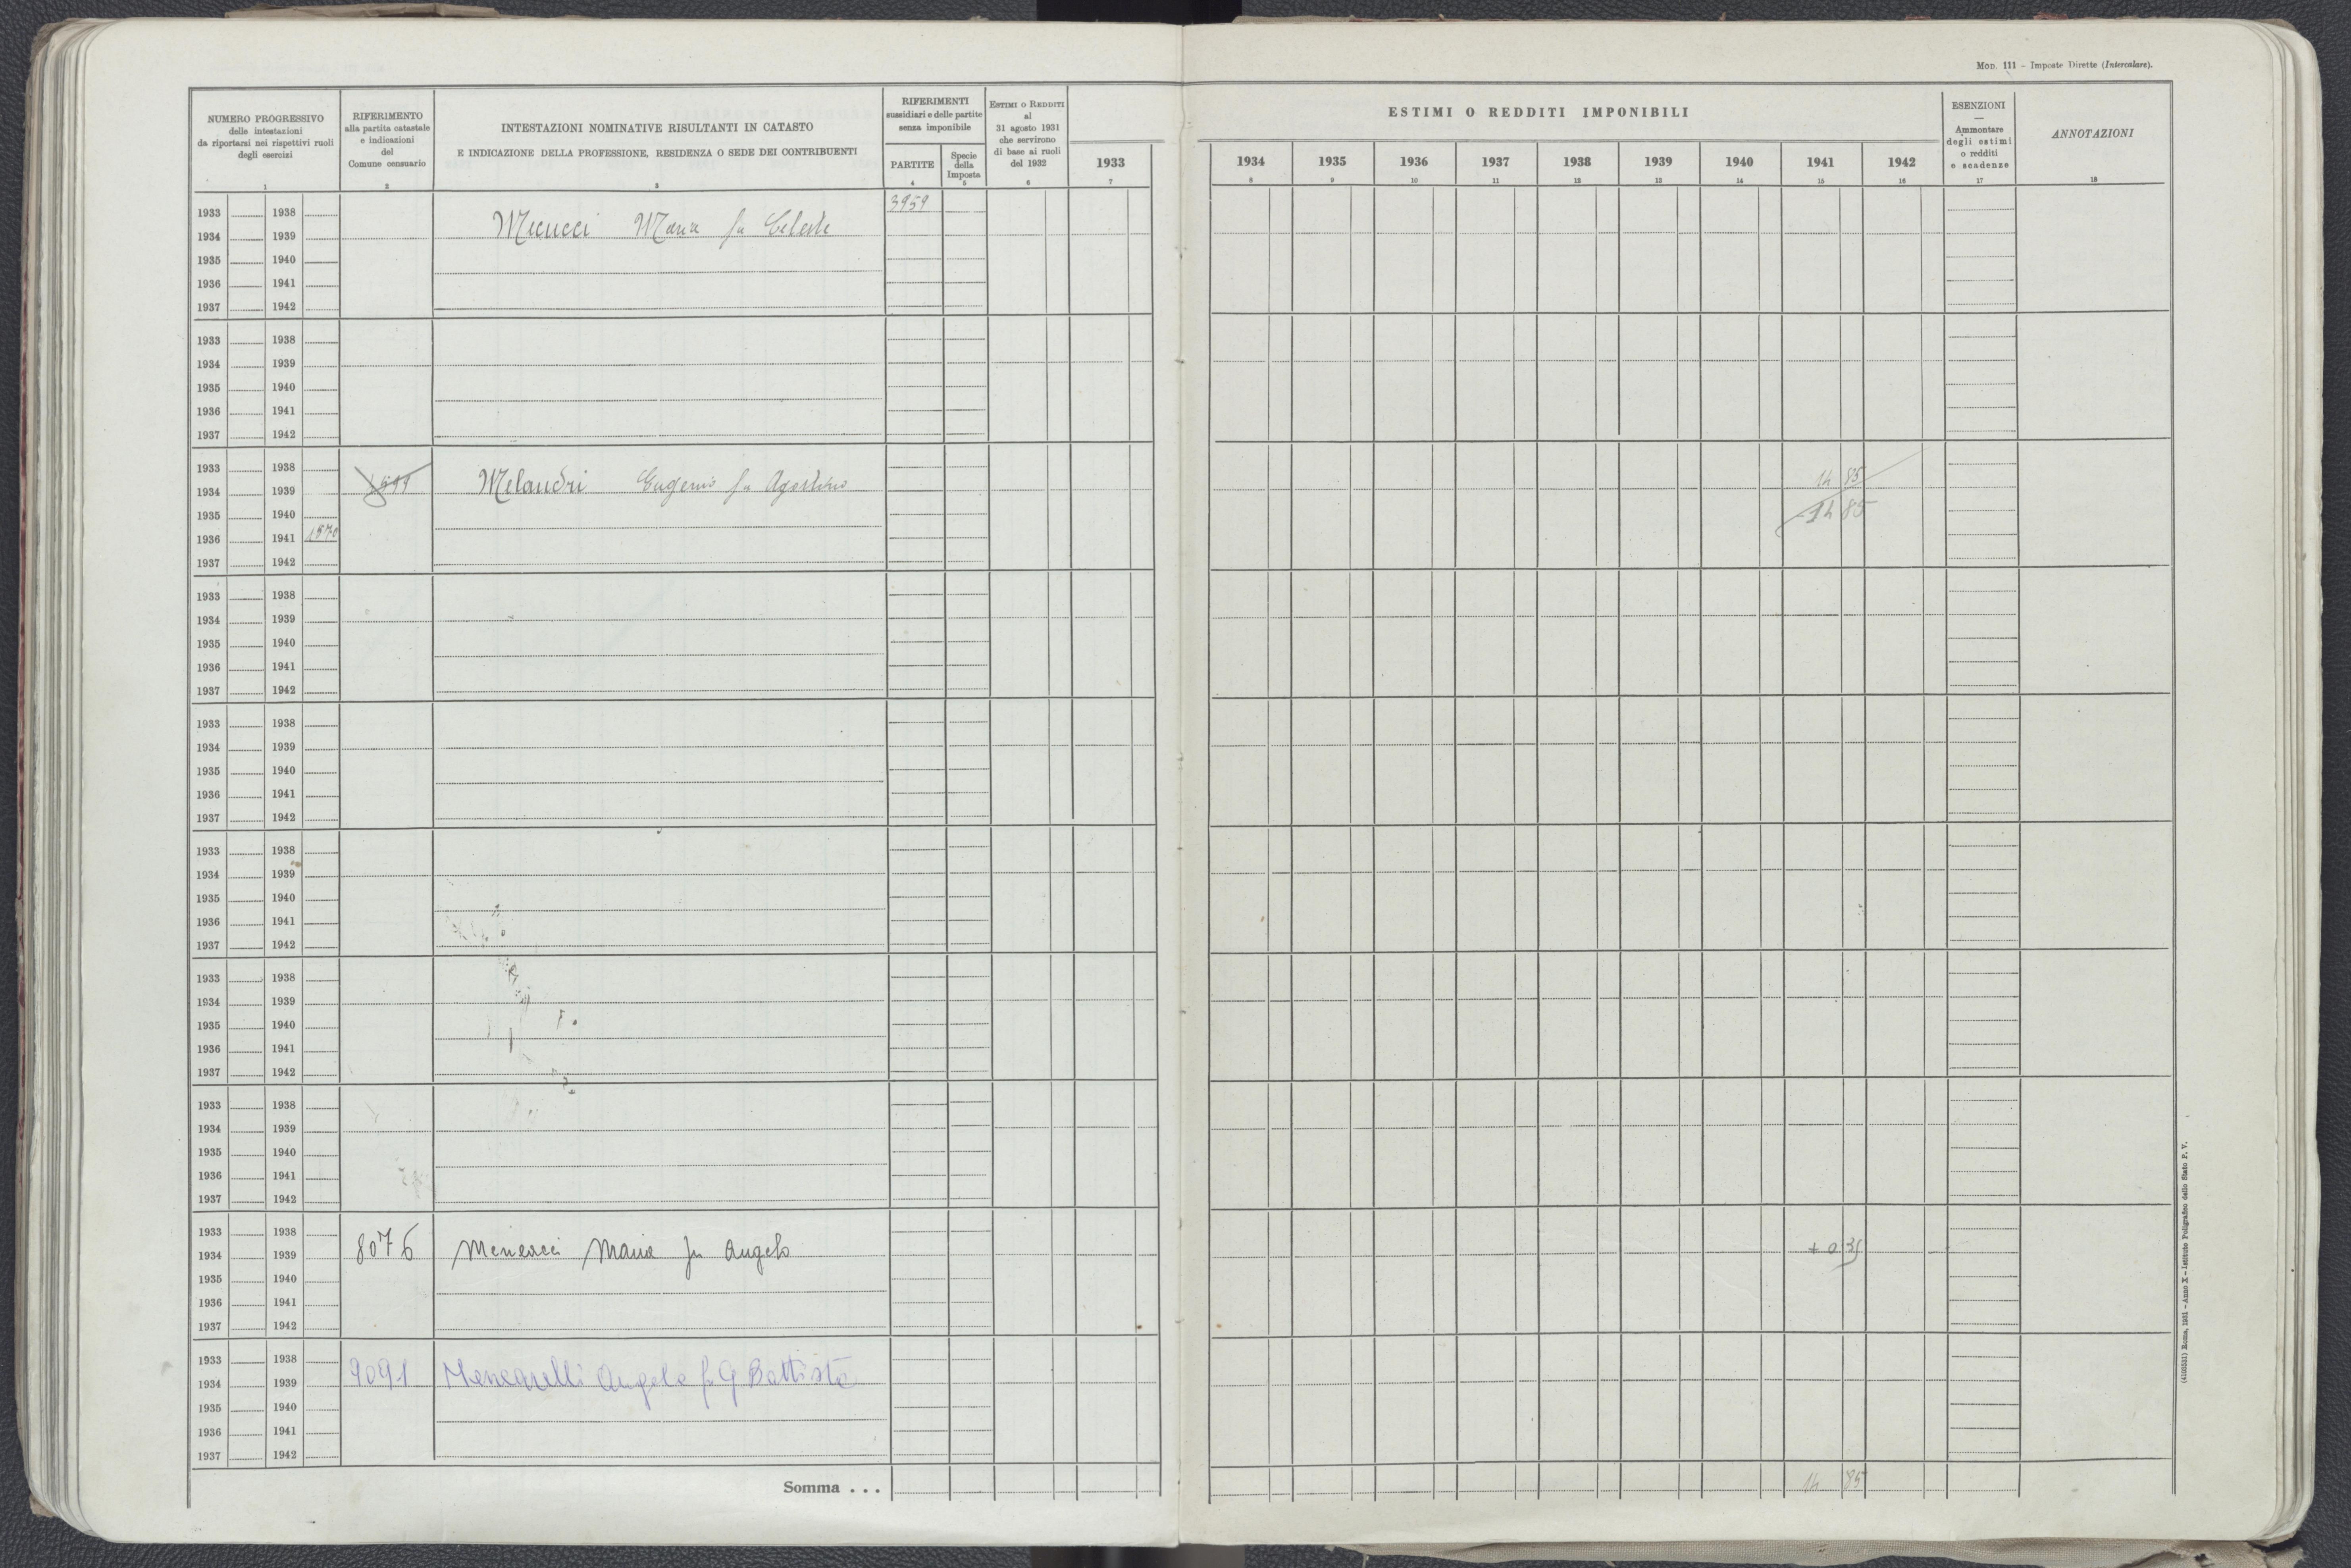 MOD. 111 – Imposte Dirette (Intercalare).
NUMERO PROGRESSIVO
delle intestazioni
da riportarsi nei rispettivi ruoli
degli esercizi
1
RIFERIMENTO
alla partita catastale
e indicazioni
del
Comune censuario
2
INTESTAZIONI NOMINATIVE RISULTANTI IN CATASTO
E INDICAZIONE DELLA PROFESSIONE, RESIDENZA O SEDE DEI CONTRIBUENTI
3
RIFERIMENTI
sussidiari e delle partite
senza imponibile
PARTITE
4
Specie
della
Imposta
5
ESTIMI O REDDITI
al
31 agosto 1931
che servirono
di base ai ruoli
del 1932
6
ESTIMI O REDDITI IMPONIBILI
1933 1934 1935 1936 1937 1938 1939 1940 1941 1942
7 8 9 10 11 12 13 14 15 16
ESENZIONI
—
Ammontare
degli estimi
o redditi
e scadenze
17
ANNOTAZIONI
18
3959
1933 1938
1934 1939 Mecucci Maria fu Celeste
1935 1940
1936 1941
1937 1942
1933 1938
1934 1939
1935 1940
1936 1941
1937 1942
1933 1938
1934 1939 Melandri Eugenio fu Agostino 14 85
1935 1940 -14 85
1936 1941 1570
1937 1942
1933 1938
1934 1939
1935 1940
1936 1941
1937 1942
1933 1938
1934 1939
1935 1940
1936 1941
1937 1942
1933 1938
1934 1939
1935 1940
1936 1941
1937 1942
1933 1938
1934 1939
1935 1940
1936 1941
1937 1942
1933 1938
1934 1939
1935 1940
1936 1941
1937 1942
1933 1938
1934 1939 8076 Menicacci Maria fu Angelo + 0 35
1935 1940
1936 1941
1937 1942
1933 1938
1934 1939 9091 Mencarelli Angelo fu G Battista
1935 1940
1936 1941
1937 1942
Somma . . . 14 85
(4169351) Roma, 1931 – Anno X – Istituto Poligrafico dello Stato P. V.